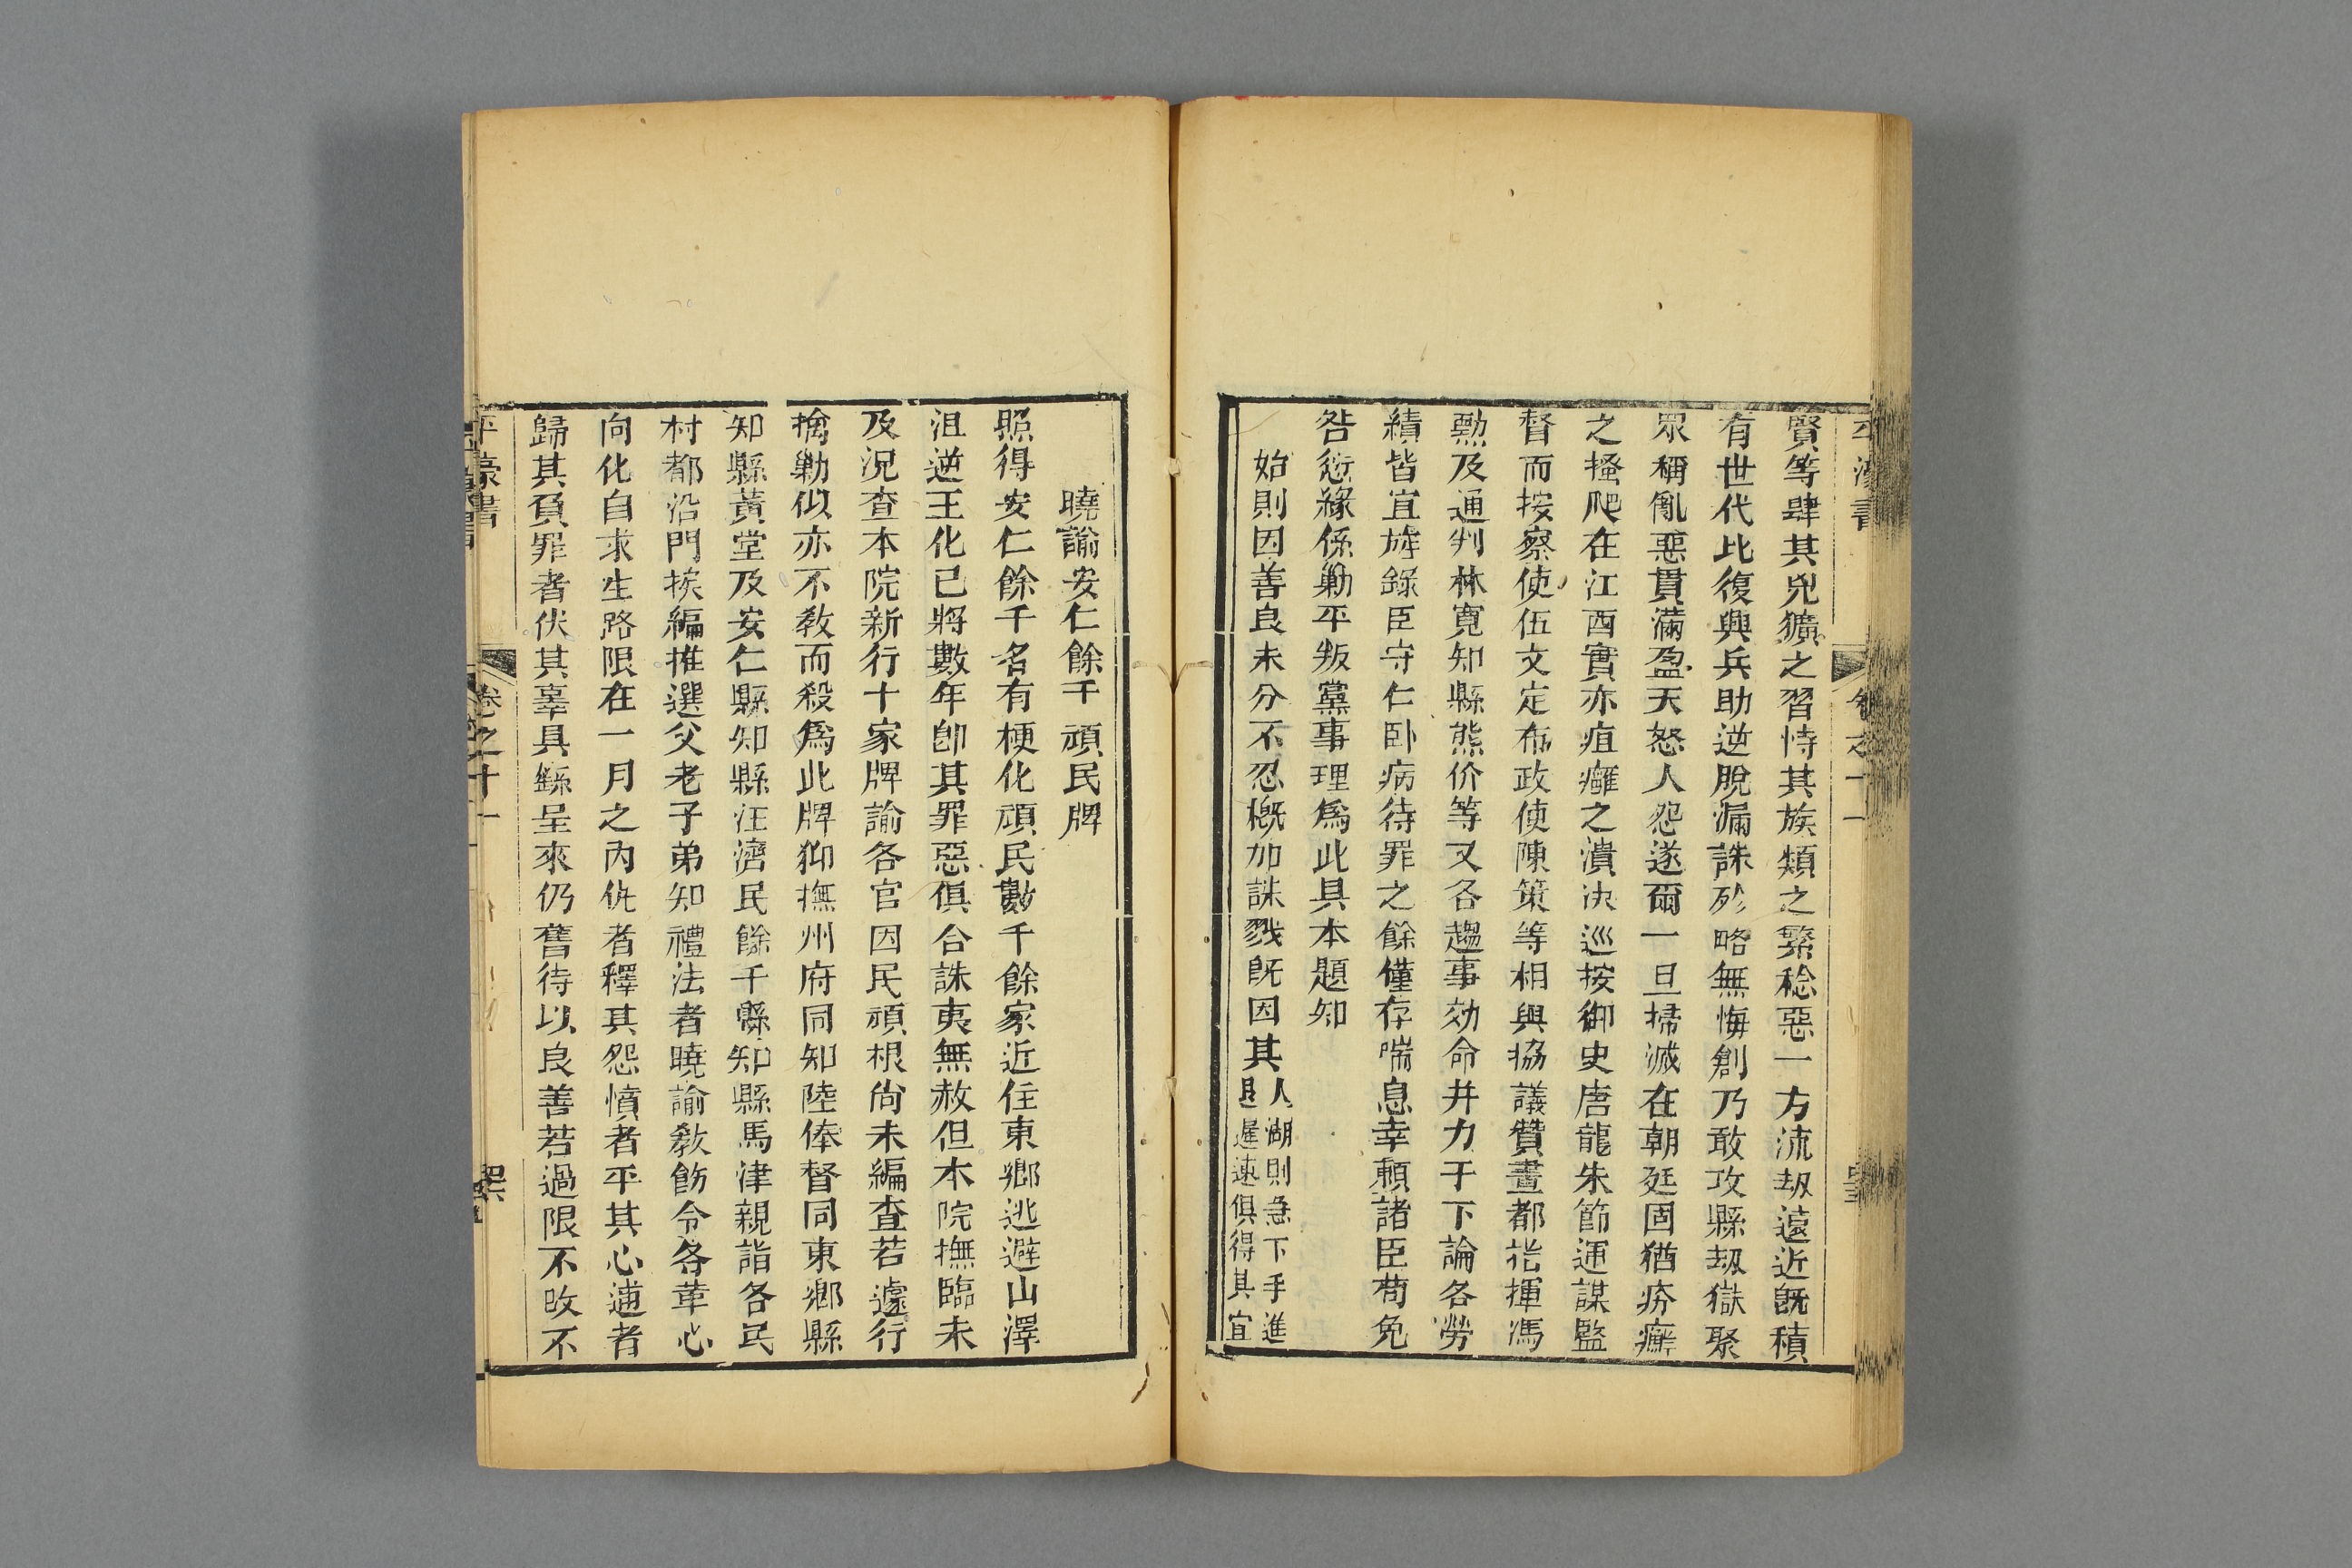 平濠書
卷之十一
賢等肆其兇獷之習恃其族類之繁稔惡一方流刼遠近旣積
有世代比復興兵助逆脫漏誅殄略無悔創乃敢攻縣刼獄聚
眾稱亂惡貫滿盈天怒人怨遂爾一旦掃滅在朝廷固猶疥癬
之搔爬在江西實亦疽癰之潰决巡按御史唐龍朱節運謀監
督而按察使伍文定布政使陳策等相與協議贊畫都指揮馮
勲及通判林寬知縣熊价等又各趨事効命并力于下論各勞
績皆宜旌錄臣守仁卧病待罪之餘僅存喘息幸頼諸臣茍免
咎愆緣係勦平叛黨事理爲此具本題知
始則因善良未分不忍槪加誅戮旣因其
人湖則急下手進
退遲速俱得其宜
曉諭安仁餘千頑民牌
照得安仁餘千名有梗化頑民數千餘家近住東鄉逃避山澤
沮逆王化已將數年卽其罪惡俱合誅夷無赦但本院撫臨未
及況查本院新行十家牌諭各官因民頑梗尚未編查若遽行
擒勦似亦不敎而殺爲此牌仰撫州府同知陸俸督同東鄉縣
知縣黃堂及安仁縣知縣汪濟民餘千縣知縣馬津親詣各民
村都沿門挨編推選父老子弟知禮法者曉諭敎飭令各革心
向化自求生路限在一月之內仇者釋其怨憤者平其心逋者
歸其負罪者伏其辜具繇呈來仍舊待以良善若過限不攺不
平濠書
卷之十一